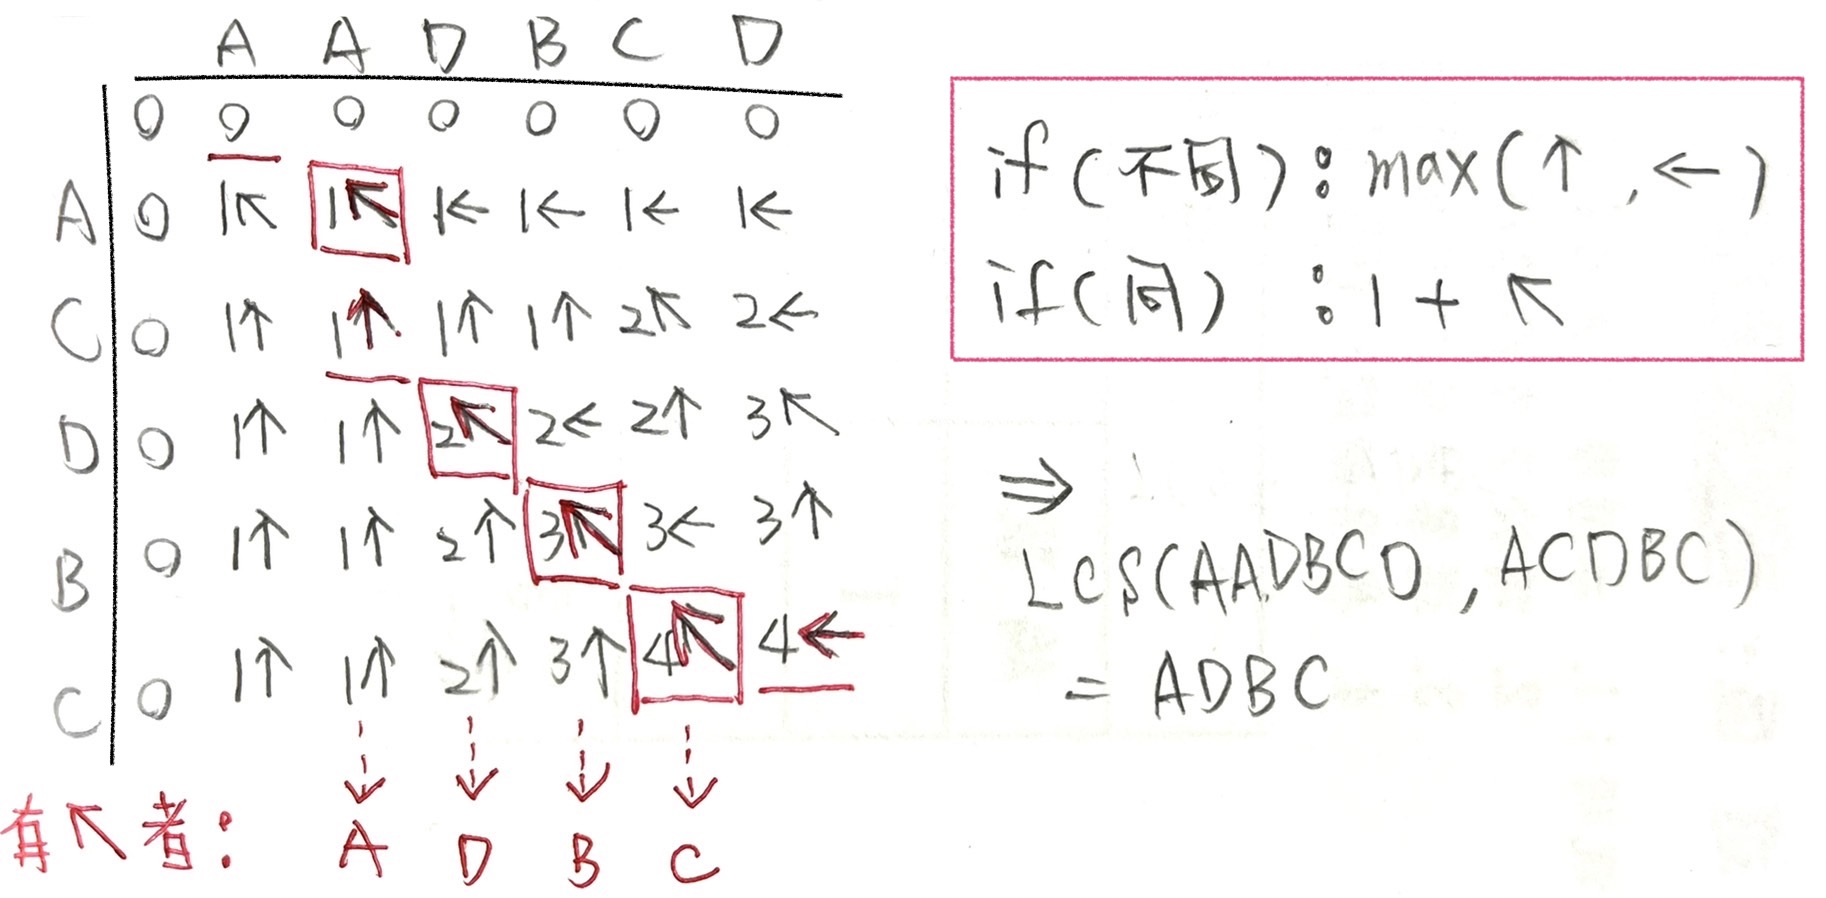 A A D B C D
0 0 0 0 0 0 0
A 0 1↖ 1↖ 1← 1← 1← 1←
C 0 1↑ 1↑ 1↑ 1↑ 2↖ 2←
D 0 1↑ 1↑ 2↖ 2← 2↑ 3↖
B 0 1↑ 1↑ 2↑ 3↖ 3← 3↑
C 0 1↑ 1↑ 2↑ 3↑ 4↖ 4←
有↖者: A D B C
if(不同):max(↑,←)
if(同) :1+↖
⇒
LCS(AADBCD,ACDBC)
=ADBC